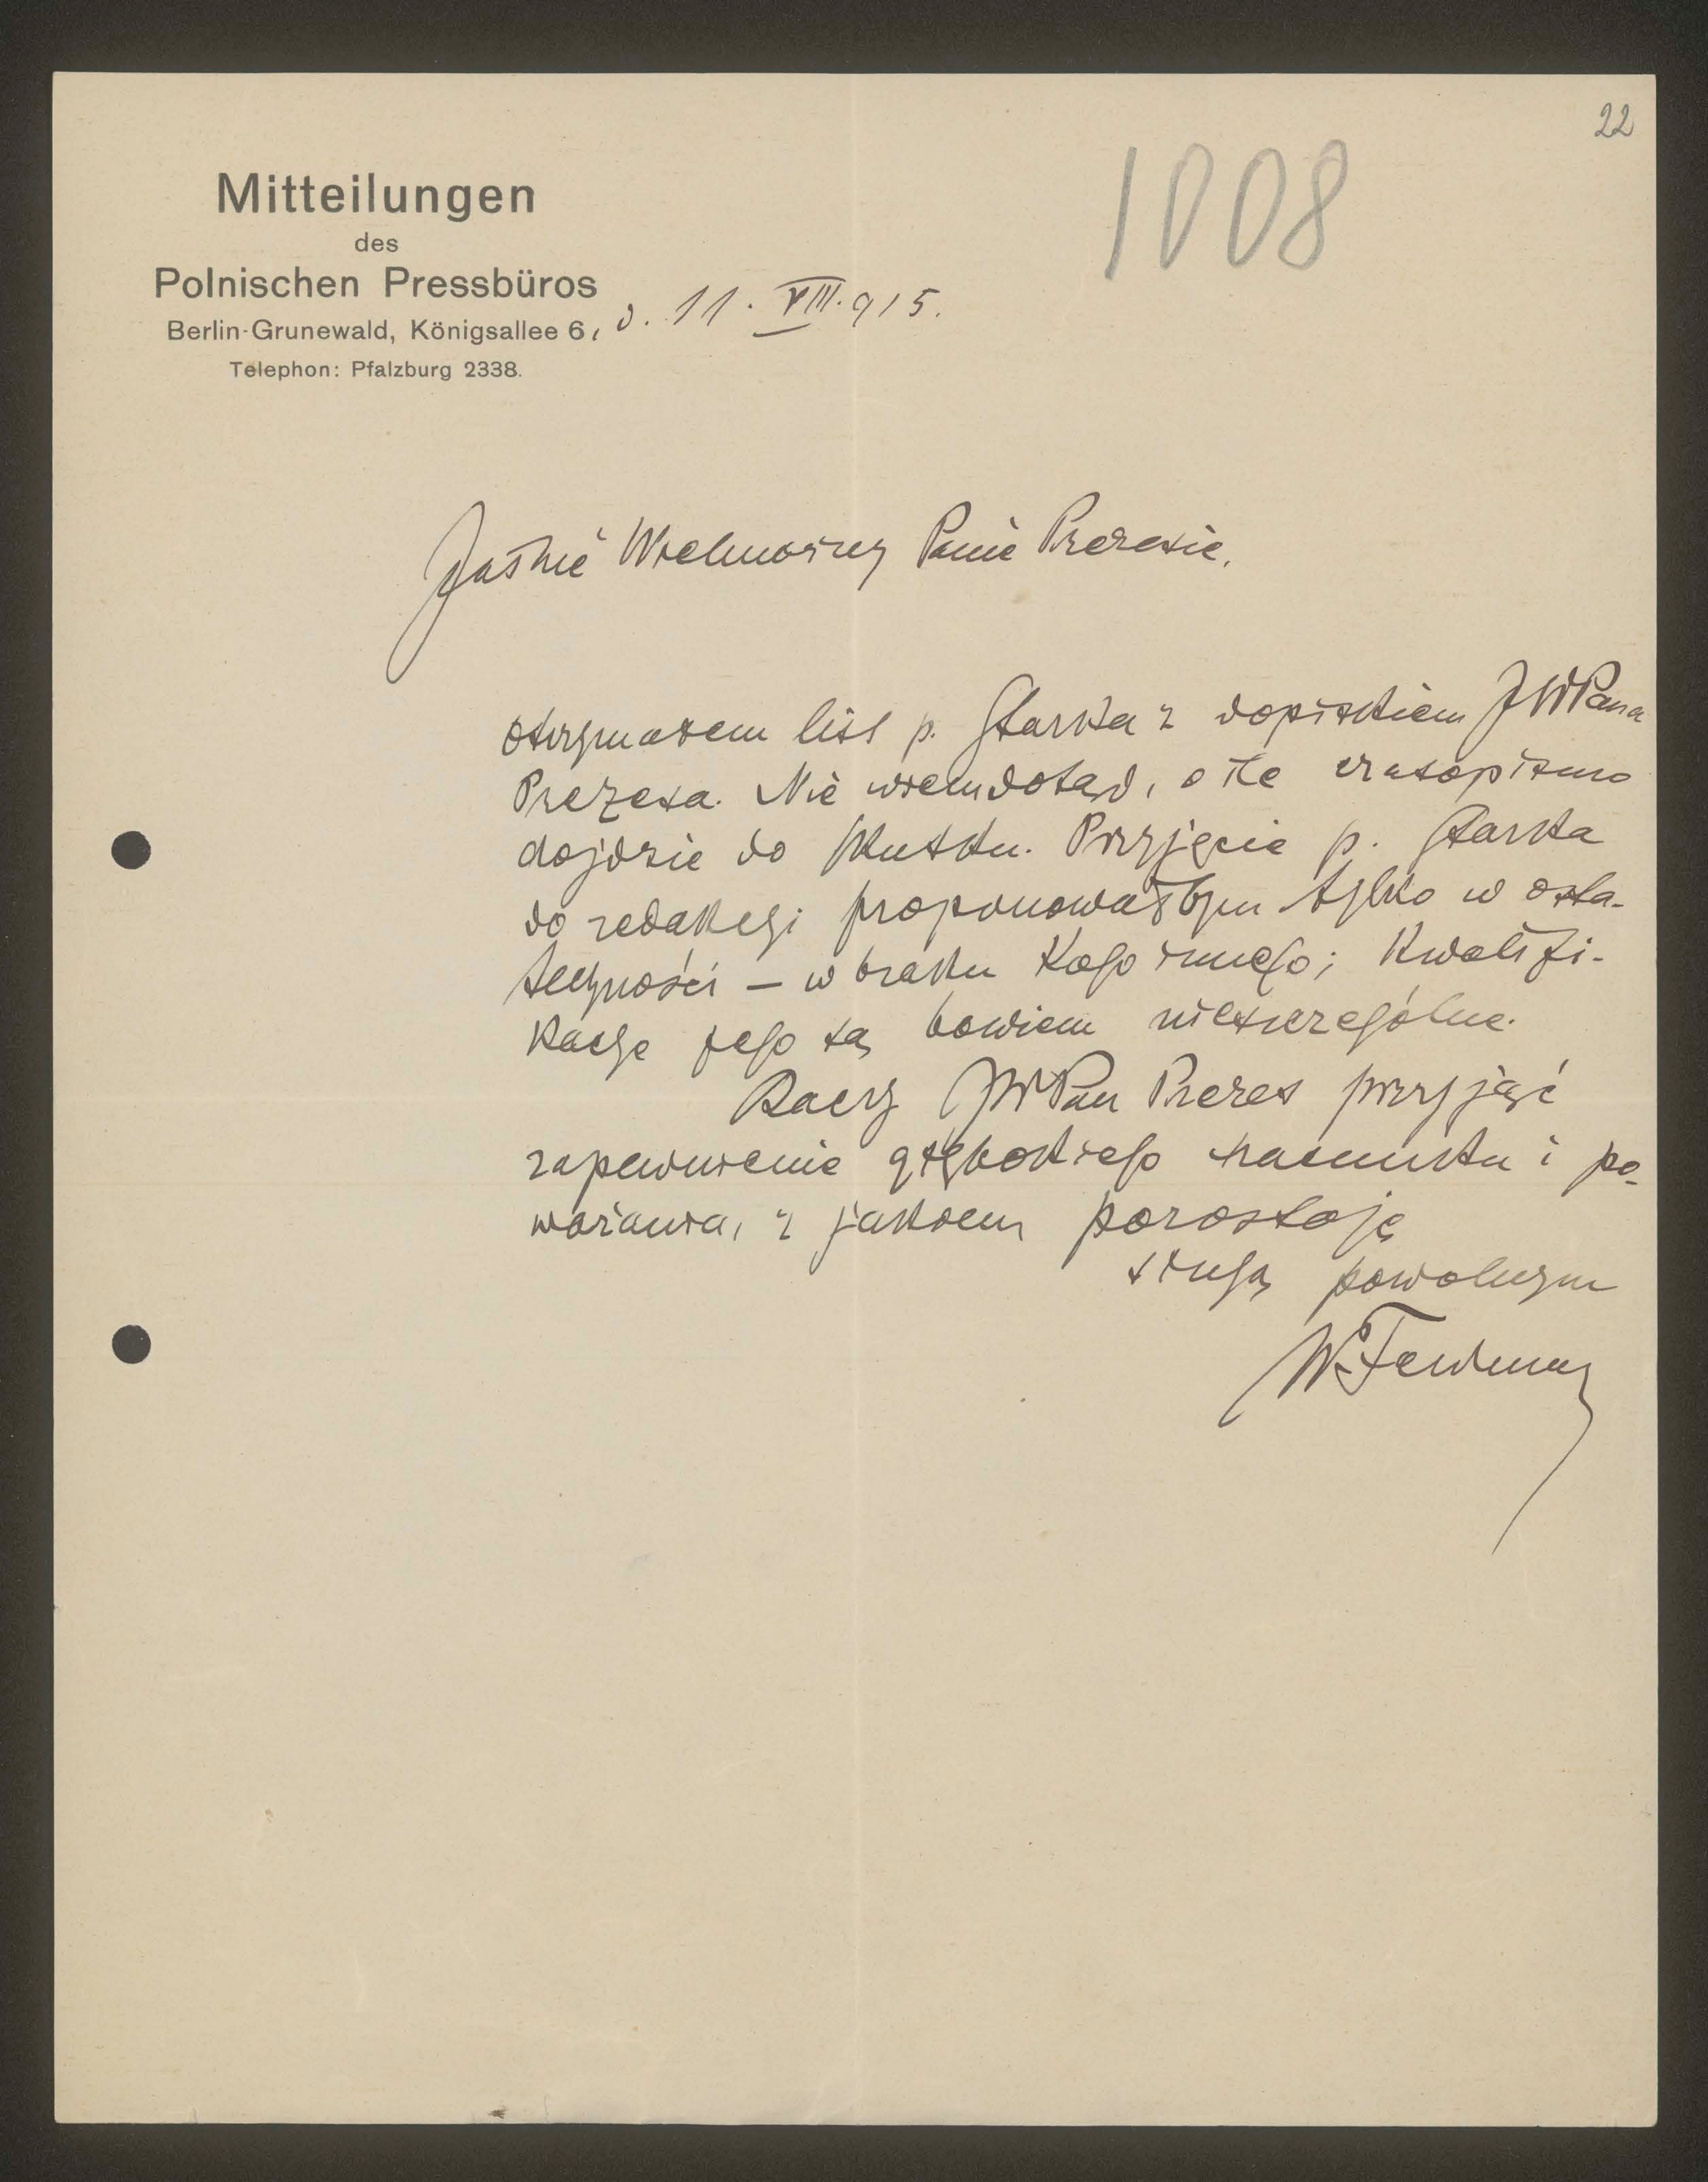 22
1008
Mitteilungen
des
Polnischen Pressbüros
Berlin-Grunewald, Königsallee 6, d. 11. VIII. 915.
Telephon: Pfalzburg 2338.
Jaśnie Wielmożny Panie Prezesie,
otrzymałem list p. Starka z dopiskiem JWPana
Prezesa. Nie wiem dotąd, o ile czasopismo
dojdzie do skutku. Przyjęcie p. Starka
do redakcyi proponowałbym tylko w osta-
teczności – w braku kogo innego; kwalifi-
kacye jego są bowiem nieszczególne.
Raczy JWPan Prezes przyjąć
zapewnienie głębokiego szacunku i po-
ważania, z jakiem pozostaję
sługą powolnym
W. Feldman